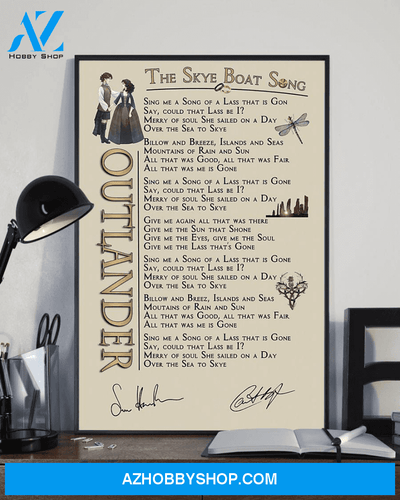 AZ
HOBBY SHOP
THE SKYE BOAT SONG
OUTLANDER
SING ME A SONG OF A LASS THAT IS GON
SAY, COULD THAT LASS BE I?
MERRY OF SOUL SHE SAILED ON A DAY
OVER THE SEA TO SKYE
BILLOW AND BREEZE, ISLANDS AND SEAS
MOUNTAINS OF RAIN AND SUN
ALL THAT WAS GOOD, ALL THAT WAS FAIR
ALL THAT WAS ME IS GONE
SING ME A SONG OF A LASS THAT IS GONE
SAY, COULD THAT LASS BE I?
MERRY OF SOUL SHE SAILED ON A DAY
OVER THE SEA TO SKYE
GIVE ME AGAIN ALL THAT WAS THERE
GIVE ME THE SUN THAT SHONE
GIVE ME THE EYES, GIVE ME THE SOUL
GIVE ME THE LASS THAT'S GONE
SING ME A SONG OF A LASS THAT IS GONE
SAY, COULD THAT LASS BE I?
MERRY OF SOUL SHE SAILED ON A DAY
OVER THE SEA TO SKYE
BILLOW AND BREEZ, ISLANDS AND SEAS
MOUTAINS OF RAIN AND SUN
ALL THAT WAS GOOD, ALL THAT WAS FAIR
ALL THAT WAS ME IS GONE
SING ME A SONG OF A LASS THAT IS GONE
SAY, COULD THAT LASS BE I?
MERRY OF SOUL SHE SAILED ON A DAY
OVER THE SEA TO SKYE
AZHOBBYSHOP.COM